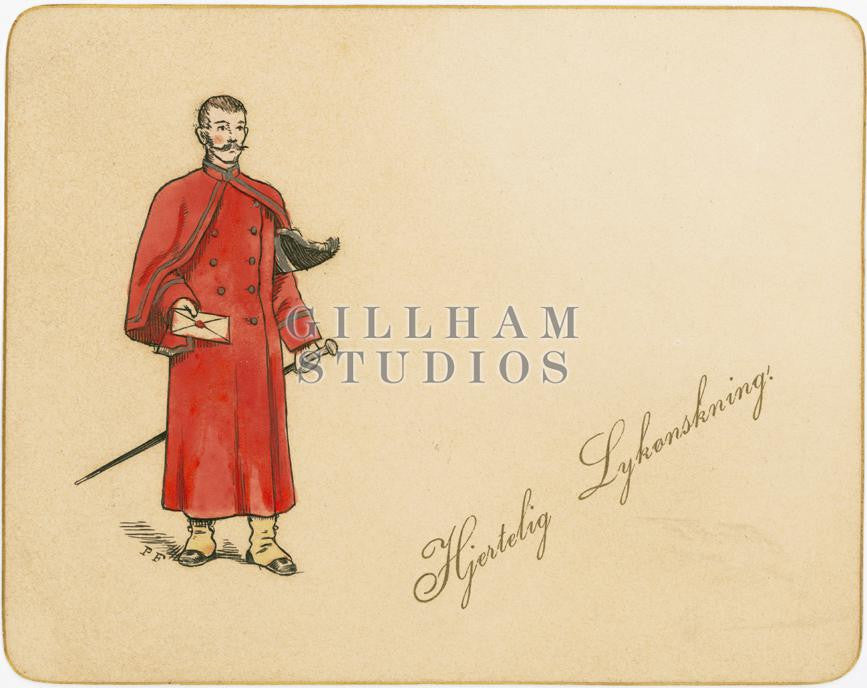 GILLHAM
STUDIOS
Hjertelig Lykønskning!
P F